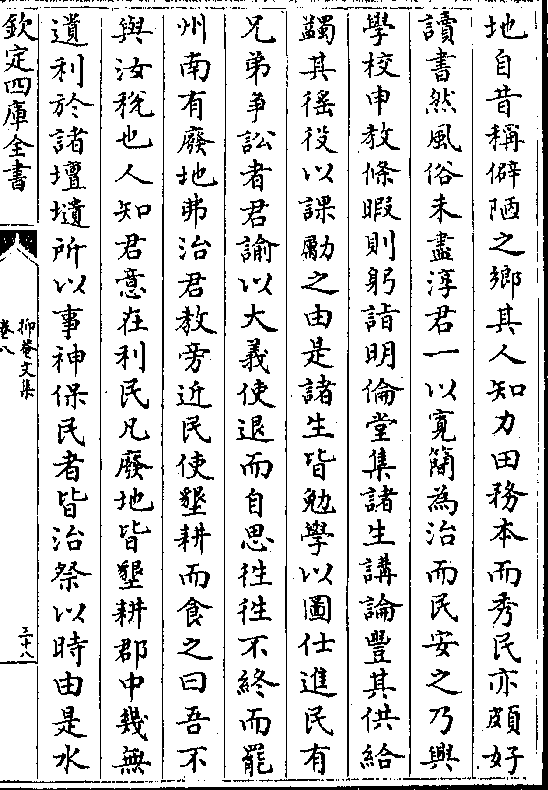 地自昔稱僻陋之鄉其人知力田務本而秀民亦頗好
讀書然風俗未盡淳君一以寛簡為治而民安之乃興
學校申教條暇則躬詣明倫堂集諸生講論豐其供給
蠲其徭役以課勵之由是諸生皆勉學以圖仕進民有
兄弟争訟者君諭以大義使退而自思徃徃不終而罷
州南有廢地弗治君教旁近民使墾耕而食之曰吾不
與汝稅也人知君意在利民凡廢地皆墾耕郡中幾無
遺利於諸壇壝所以事神保民者皆治祭以時由是水
欽定四庫全書
抑菴文集
卷八
三十八